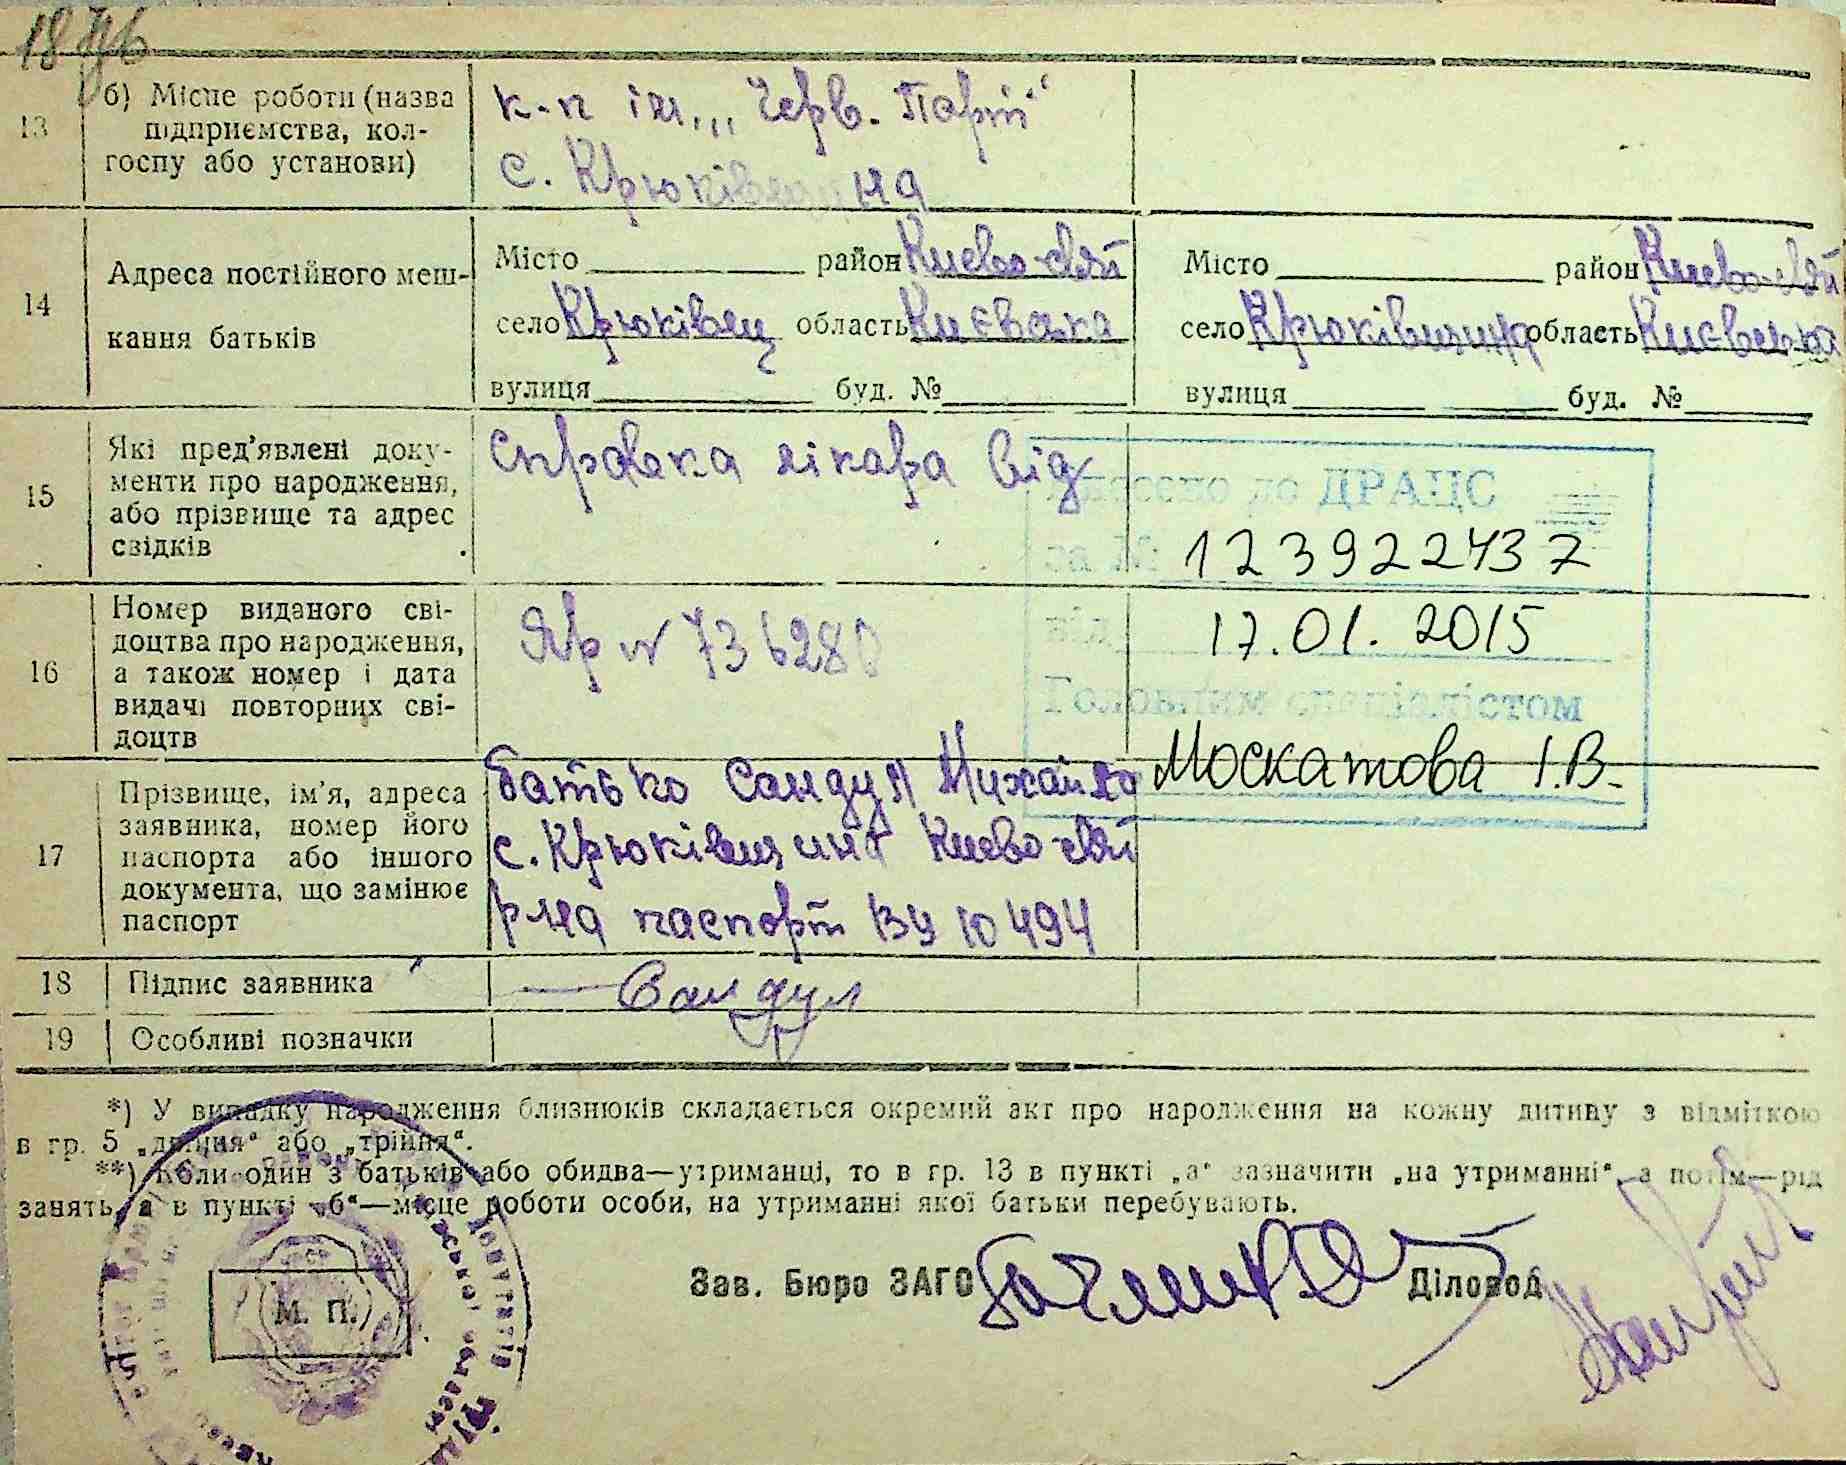 18
13
б) Місце роботи (назва
підприємства, кол-
госпу або установи)
к-п ім. „Черв. Парт"
с. Крюківщина
14
Адреса постійного меш-
кання батьків
Місто район Києво-Свят
село Крюківщ область Києвська
вулиця буд. №
Місто район Києво-Свят
село Крюківщина область Києвська
вулиця буд. №
15
Які пред'явлені доку-
менти про народження,
або прізвище та адрес
свідків
Справка лікара від
Внесено до ДРАЦС
за № 123922437
від 17.01.2015
Головним спеціалістом
Москатова І.В.
16
Номер виданого сві-
доцтва про народження,
а також номер і дата
видачі повторних сві-
доцтв
ЯР № 736280
17
Прізвище, ім'я, адреса
заявника, номер його
паспорта або іншого
документа, що замінює
паспорт
батько Сандул Михайло
с. Крюківщина Києво-Свят
р-на паспорт ВЧ 10494
18
Підпис заявника
Сандул
19
Особливі позначки
*) У випадку народження близнюків складається окремий акт про народження на кожну дитину з відміткою
в гр. 5 „двійня" або „трійня".
**) Коли один з батьків або обидва—утриманці, то в гр. 13 в пункті „а" зазначити „на утриманні", а потім—рід
занять, а в пункті „б"—місце роботи особи, на утриманні якої батьки перебувають.
Зав. Бюро ЗАГС
Діловод
М. П.